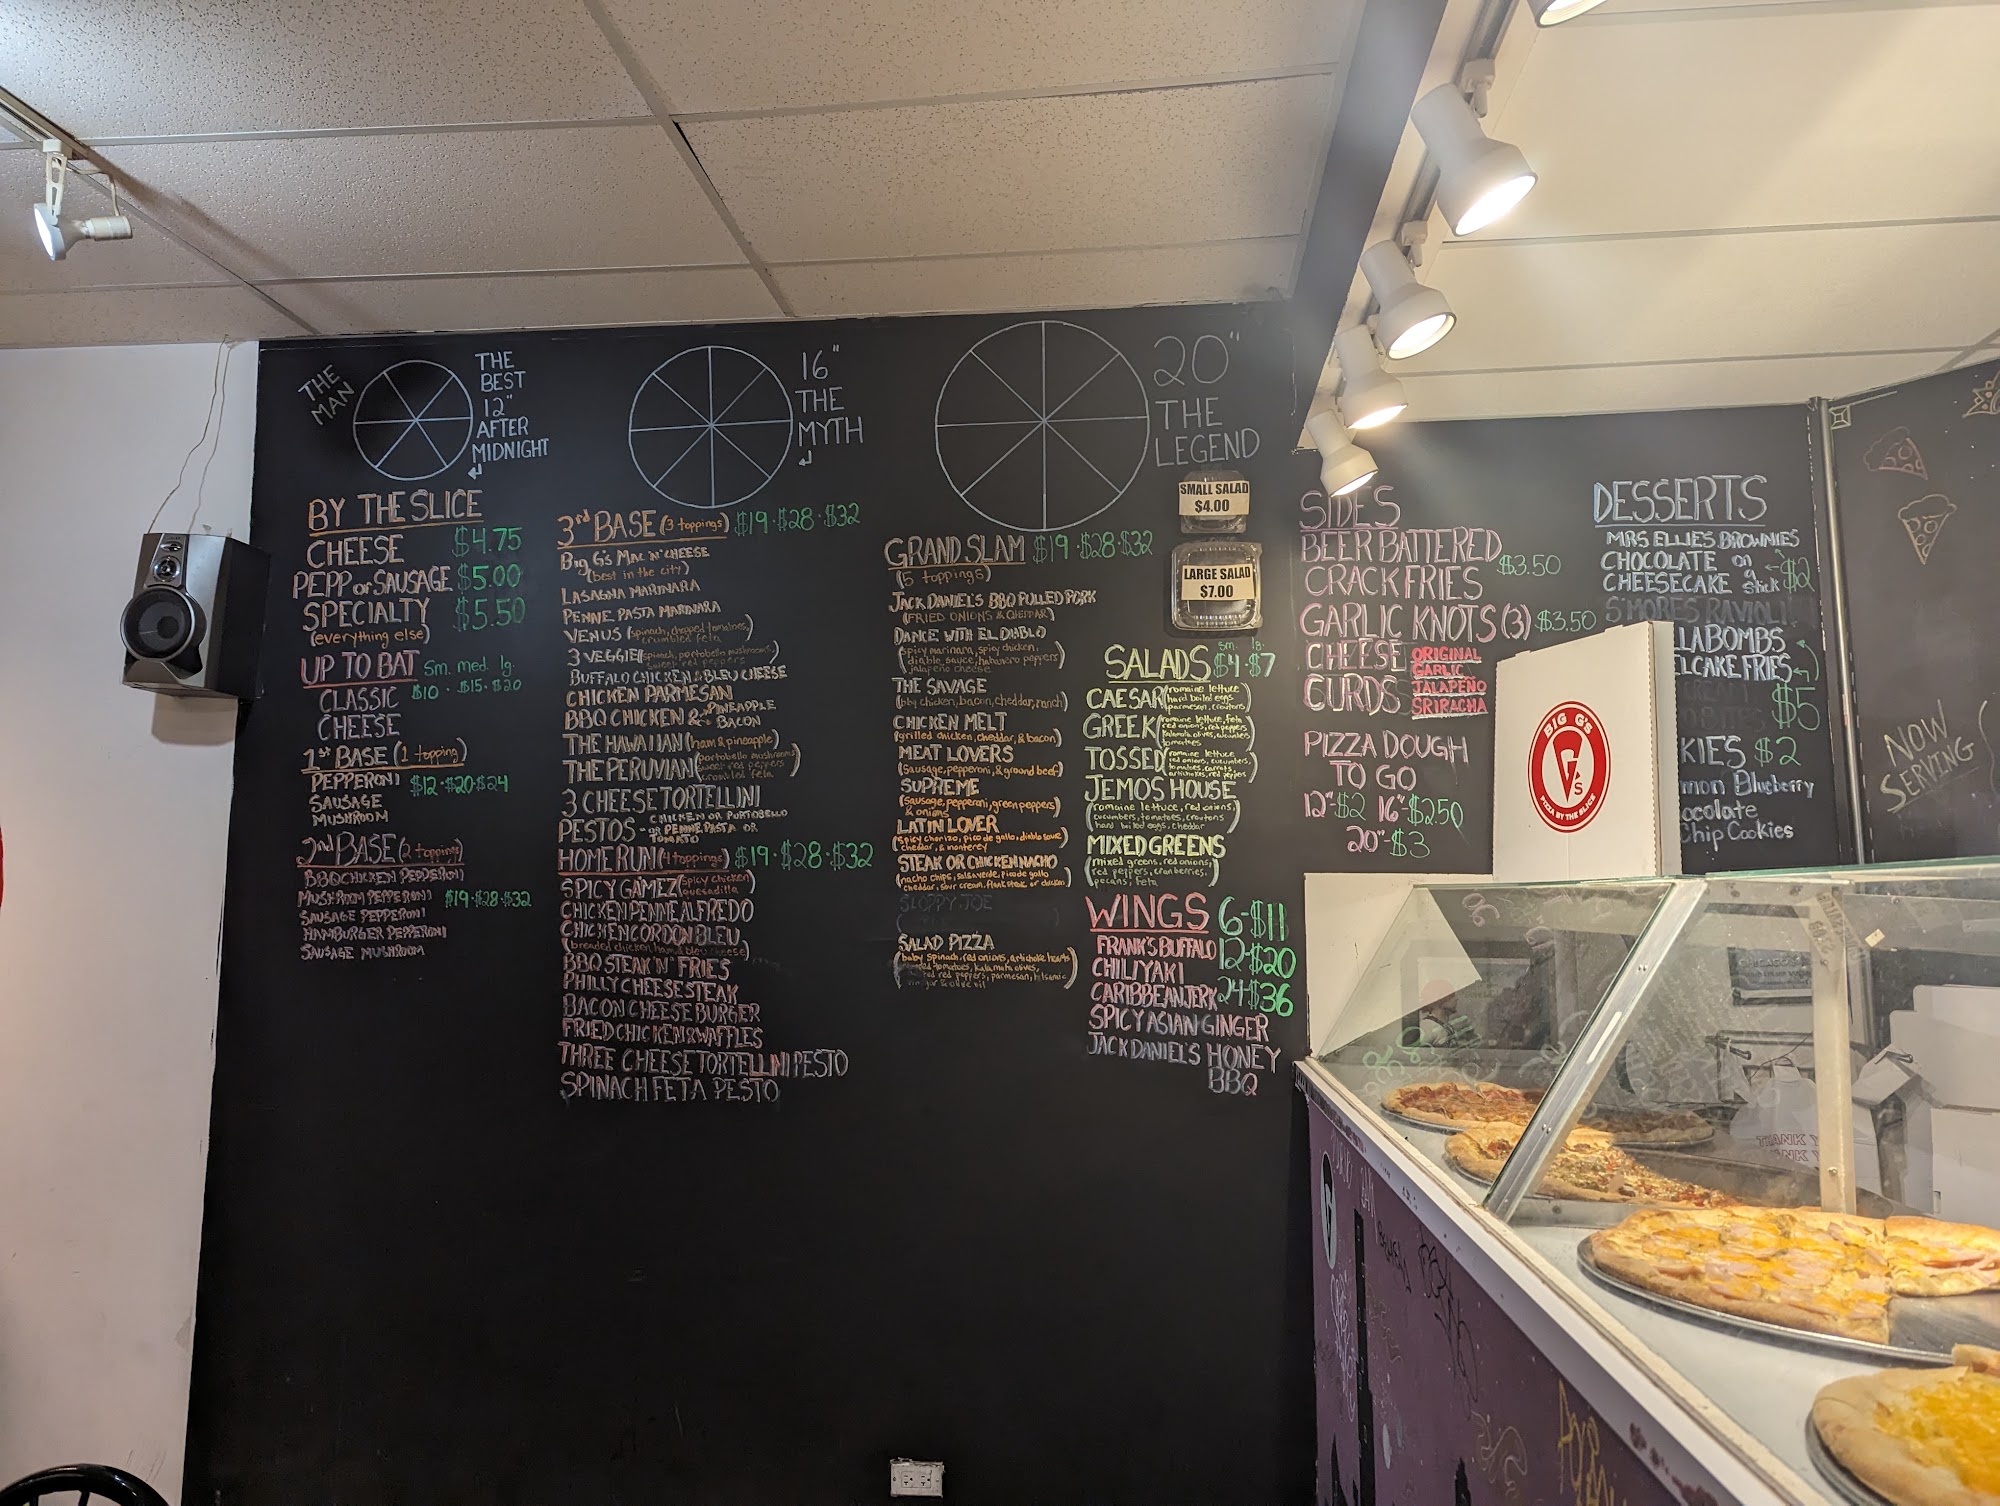 THE MAN
THE
BEST
12"
AFTER
MIDNIGHT
BY THE SLICE
CHEESE $4.75
PEPP or SAUSAGE $5.00
SPECIALTY $5.50
(everything else)
UP TO BAT Sm. med. lg.
CLASSIC $10 · $15 · $20
CHEESE
1st BASE (1 topping)
PEPPERONI $12 · $20 · $24
SAUSAGE
MUSHROOM
2nd BASE (2 toppings)
BBQ CHICKEN PEPPERONI
MUSHROOM PEPPERONI $19 · $28 · $32
SAUSAGE PEPPERONI
HAMBURGER PEPPERONI
SAUSAGE MUSHROOM
16"
THE
MYTH
3rd BASE (3 toppings) $19 · $28 · $32
Big G's Mac 'n' Cheese
(best in the city)
LASAGNA MARINARA
PENNE PASTA MARINARA
VENUS (spinach, chopped tomatoes,
crumbled feta)
3 VEGGIE (spinach, portobello mushrooms,
sweet red peppers)
BUFFALO CHICKEN & BLEU CHEESE
CHICKEN PARMESAN
BBQ CHICKEN & PINEAPPLE
BACON
THE HAWAIIAN (ham & pineapple)
THE PERUVIAN (portobello mushrooms
sweet red peppers
crumbled feta)
3 CHEESE TORTELLINI
PESTOS - CHICKEN OR PORTOBELLO
OR PENNE PASTA OR
TOMATO
HOME RUN (4 toppings) $19 · $28 · $32
SPICY GAMEZ (spicy chicken
quesadilla)
CHICKEN PENNE ALFREDO
CHICKEN CORDON BLEU
(breaded chicken, ham & bleu cheese)
BBQ STEAK 'N' FRIES
PHILLY CHEESE STEAK
BACON CHEESE BURGER
FRIED CHICKEN & WAFFLES
THREE CHEESE TORTELLINI PESTO
SPINACH FETA PESTO
20"
THE
LEGEND
GRAND SLAM $19 · $28 · $32
(5 toppings)
JACK DANIEL'S BBQ PULLED PORK
(FRIED ONIONS & CHEDDAR)
DANCE WITH EL DIABLO
(spicy marinara, spicy chicken,
diablo sauce, habanero peppers,
jalapeño cheese)
THE SAVAGE
(bbq chicken, bacon, cheddar, ranch)
CHICKEN MELT
(grilled chicken, cheddar, & bacon)
MEAT LOVERS
(Sausage, pepperoni, & ground beef)
SUPREME
(Sausage, pepperoni, green peppers
& onions)
LATIN LOVER
(spicy chorizo, pico de gallo, diablo sauce
cheddar, & monterey)
STEAK OR CHICKEN NACHO
(nacho chips, salsa verde, pico de gallo
cheddar, sour cream, flank steak or chicken)
SLOPPY JOE
SALAD PIZZA
(baby spinach, red onions, artichoke hearts
tomatoes, kalamata olives,
red peppers, parmesan, balsamic
& olive oil)
SMALL SALAD
$4.00
LARGE SALAD
$7.00
sm. lg.
SALADS $4 · $7
CAESAR (romaine lettuce
hard boiled eggs
parmesan, croutons)
GREEK (romaine lettuce, feta
red onions, red peppers
kalamata olives, cucumbers
tomatoes)
TOSSED (romaine lettuce
red onions, cucumbers,
tomatoes, carrots
artichokes, red peppers)
JEMO'S HOUSE
(romaine lettuce, red onions,
cucumbers, tomatoes, croutons
hard boiled eggs, cheddar)
MIXED GREENS
(mixed greens, red onions,
red peppers, cranberries,
pecans, feta)
WINGS 6-$11
FRANK'S BUFFALO 12-$20
CHILIYAKI
CARIBBEAN JERK 24-$36
SPICY ASIAN GINGER
JACK DANIEL'S HONEY
BBQ
SIDES
BEER BATTERED
CRACK FRIES $3.50
GARLIC KNOTS (3) $3.50
CHEESE
CURDS
ORIGINAL
GARLIC
JALAPEÑO
SRIRACHA
PIZZA DOUGH
TO GO
12"-$2 16"-$2.50
20"-$3
DESSERTS
MRS ELLIE'S BROWNIES
CHOCOLATE on
CHEESECAKE a stick $2
S'MORES RAVIOLI
LLABOMBS
ELCAKE FRIES
$5
KIES $2
mon Blueberry
ocolate
Chip Cookies
BIG G'S
G's
PIZZA BY THE SLICE
NOW
SERVING
THANK